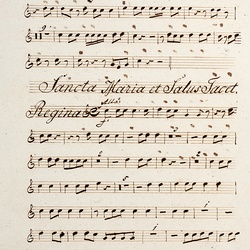 Sancta Maria et Salus Tacet.
Regina